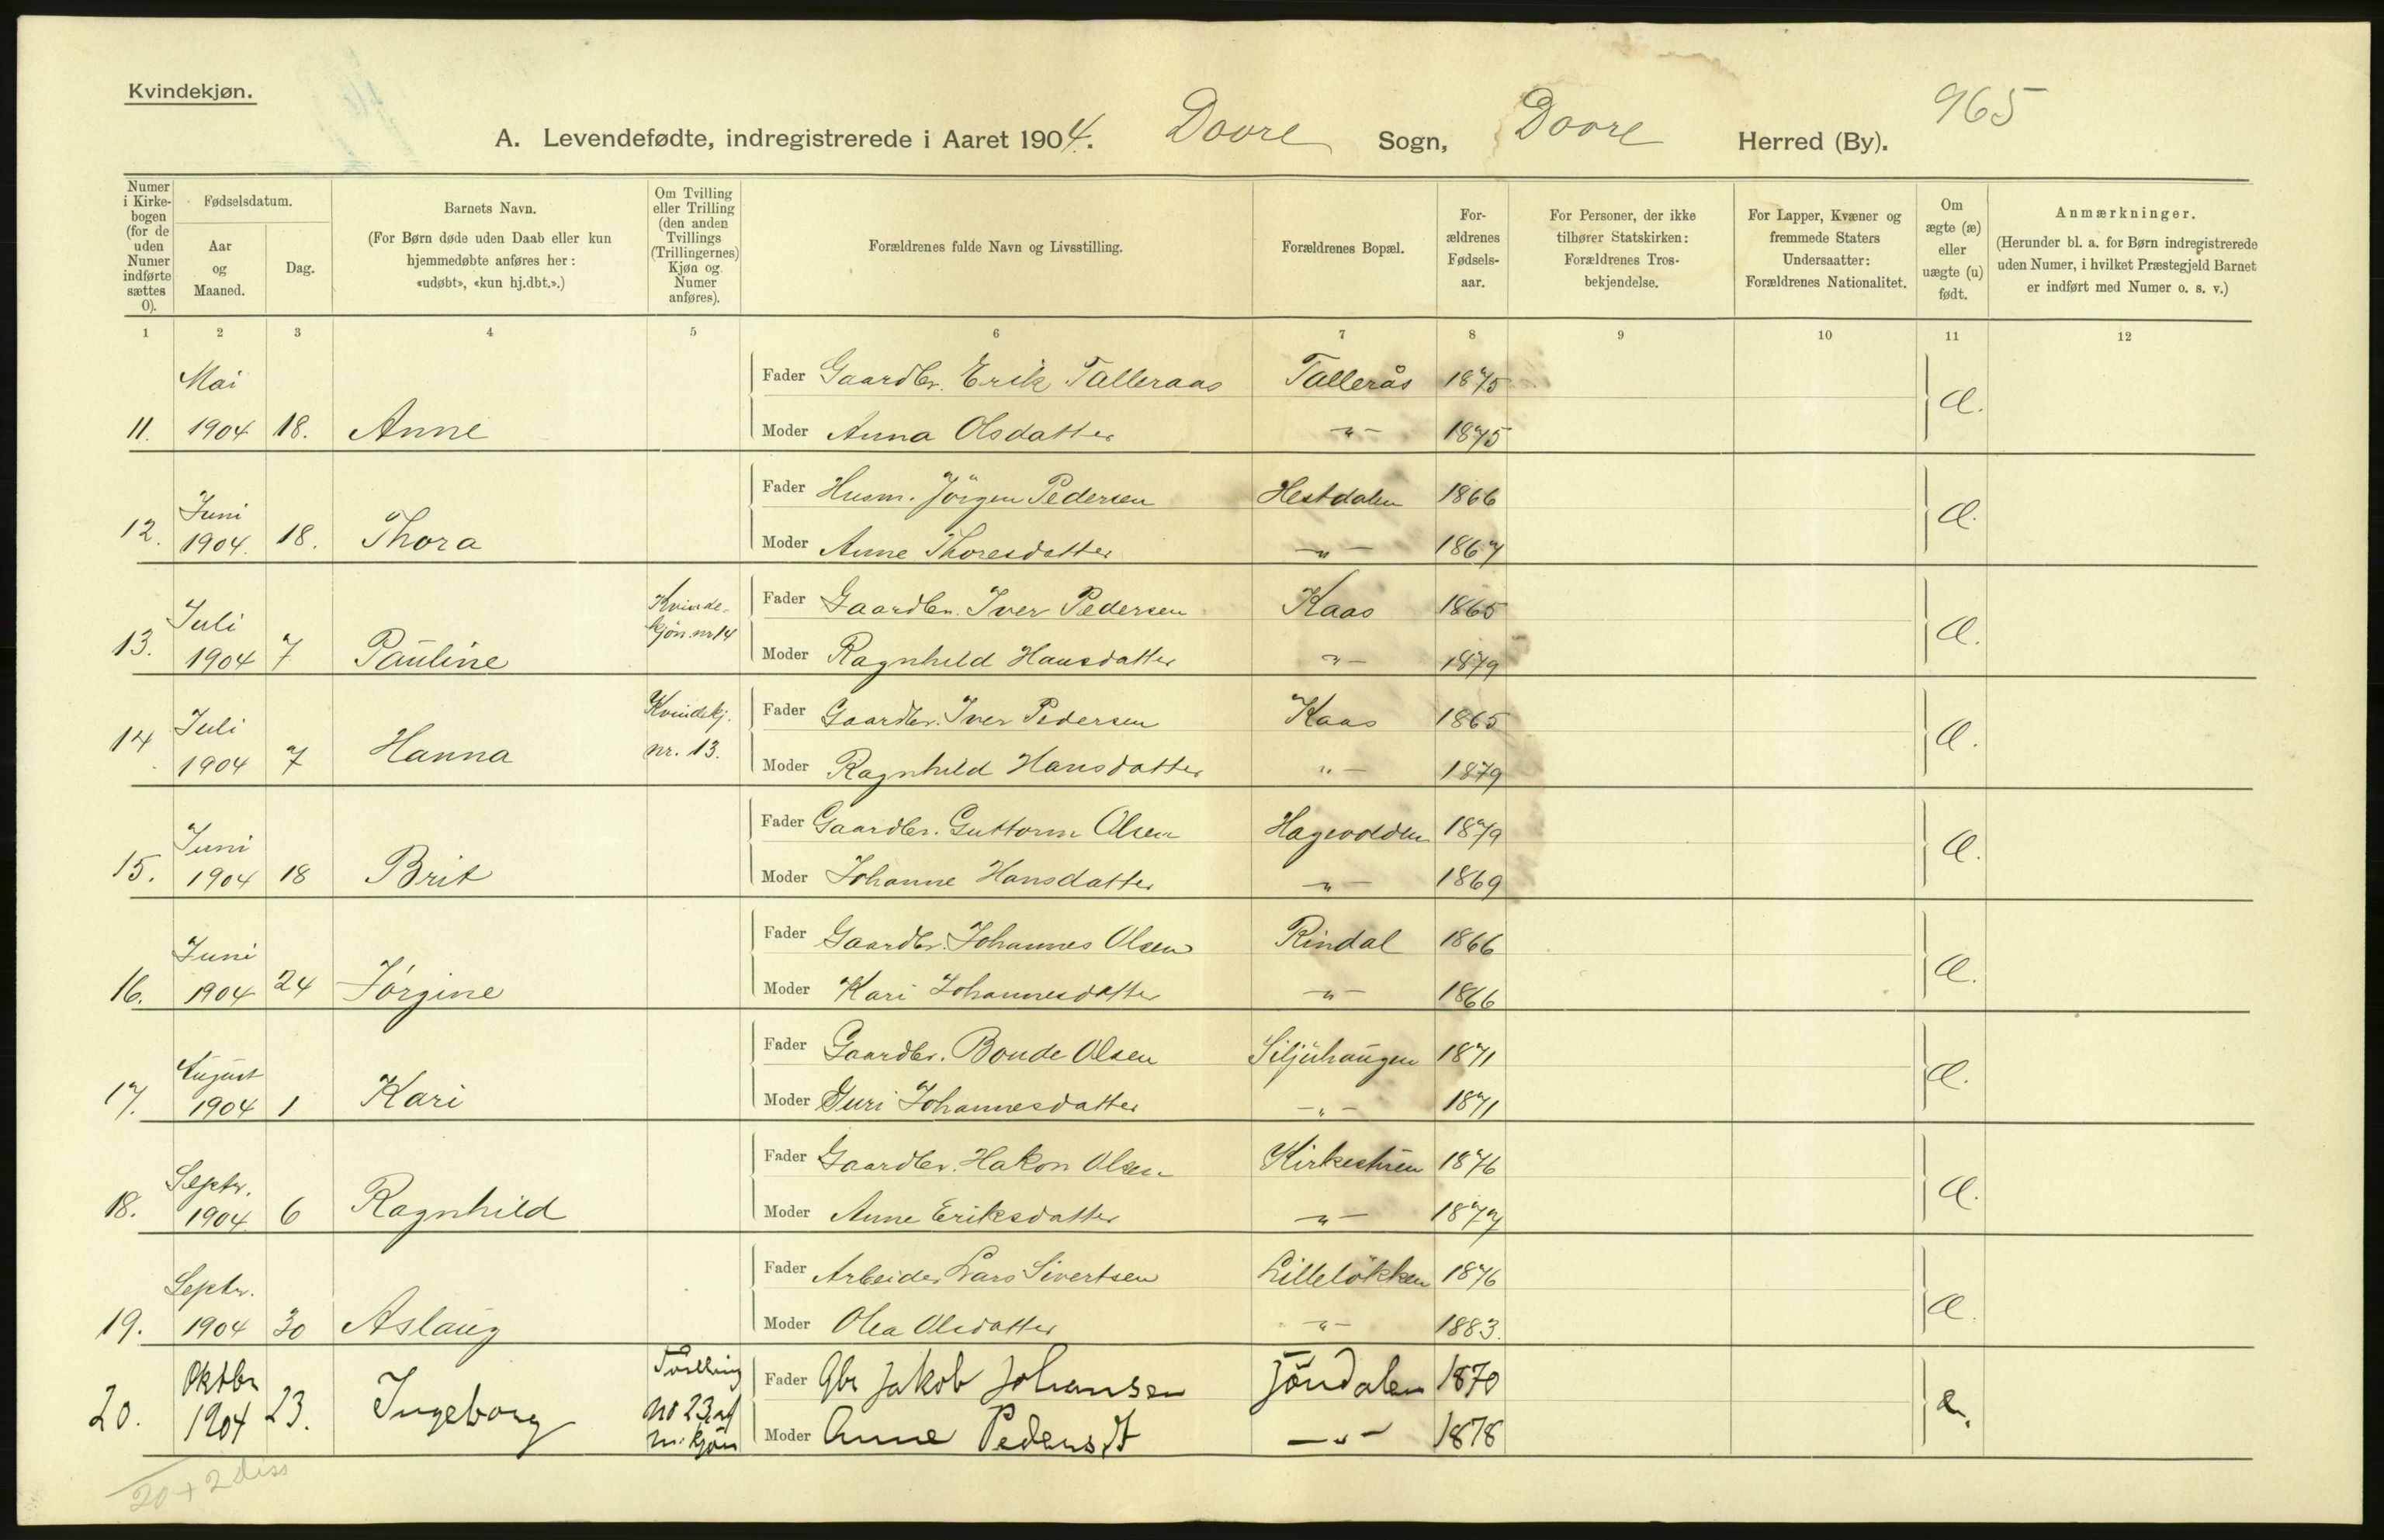 Kvindekjøn.
965
A. Levendefødte, indregistrerede i Aaret 1904. Dovre Sogn, Dovre Herred (By).
Numer i Kirkebogen (for de uden Numer indførte sættes 0).
Fødselsdatum.
Aar og Maaned.
Dag.
Barnets Navn.
(For Børn døde uden Daab eller kun hjemmedøbte anføres her: «udøbt», «kun hj.dbt.».)
Om Tvilling eller Trilling (den anden Tvillings (Trillingernes) Kjøn og Numer anføres).
Forældrenes fulde Navn og Livsstilling.
Forældrenes Bopæl.
Forældrenes Fødselsaar.
For Personer, der ikke tilhører Statskirken: Forældrenes Trosbekjendelse.
For Lapper, Kvæner og fremmede Staters Undersaatter: Forældrenes Nationalitet.
Om ægte (æ) eller uægte (u) født.
Anmærkninger.
(Herunder bl. a. for Børn indregistrerede uden Numer, i hvilket Præstegjeld Barnet er indført med Numer o. s. v.)
1 2 3 4 5 6 7 8 9 10 11 12
Mai Fader Gaardbr. Erik Talleraas Tallerås 1875 Æ.
11. 1904 18. Anne Moder Anna Olsdatter -"- 1875
Juni Fader Husm. Jörgen Pedersen Hestdalen 1866 Æ.
12. 1904. 18. Thora Moder Anne Thoresdatter -"- 1867
Juli Kvindekjön nr 14 Fader Gaardbr. Iver Pedersen Kaas 1865 Æ.
13. 1904 7 Pauline Moder Ragnhild Hansdatter -"- 1879
Juli Kvindekj. nr. 13. Fader Gaardbr. Iver Pedersen Kaas 1865 Æ.
14 1904 7 Hanna Moder Ragnhild Hansdatter "- 1879
Juni Fader Gaardbr. Guttorm Olsen Hagevolden 1879 Æ.
15. 1904 18 Brit Moder Johanne Hansdatter -"- 1869
Juni Fader Gaardbr. Johannes Olsen Rindal 1866 Æ.
16. 1904 24 Jörgine Moder Kari Johannesdatter -"- 1866
August Fader Gaardbr. Bonde Olsen Siljuhaugen 1871 Æ.
17. 1904 1 Kari Moder Guri Johannesdatter -"- 1871
Septr. Fader Gaardbr. Hakon Olsen 1876 Æ.
18. 1904. 6 Ragnhild Moder Anne Eriksdatter -"- 1877
Septr. Fader Arbeider Lars Sivertsen Lillelökken 1876 Æ.
19. 1904 30 Aslaug Moder Olea Olsdatter -"- 1883.
Oktbr Tvilling Fader Gbr Jakob Johansen Jöndalen 1870 Æ.
20. 1904 23. Ingeborg No 23 af m. kjön Moder Anne Pedersdt -"- 1878
20 + 2 diss